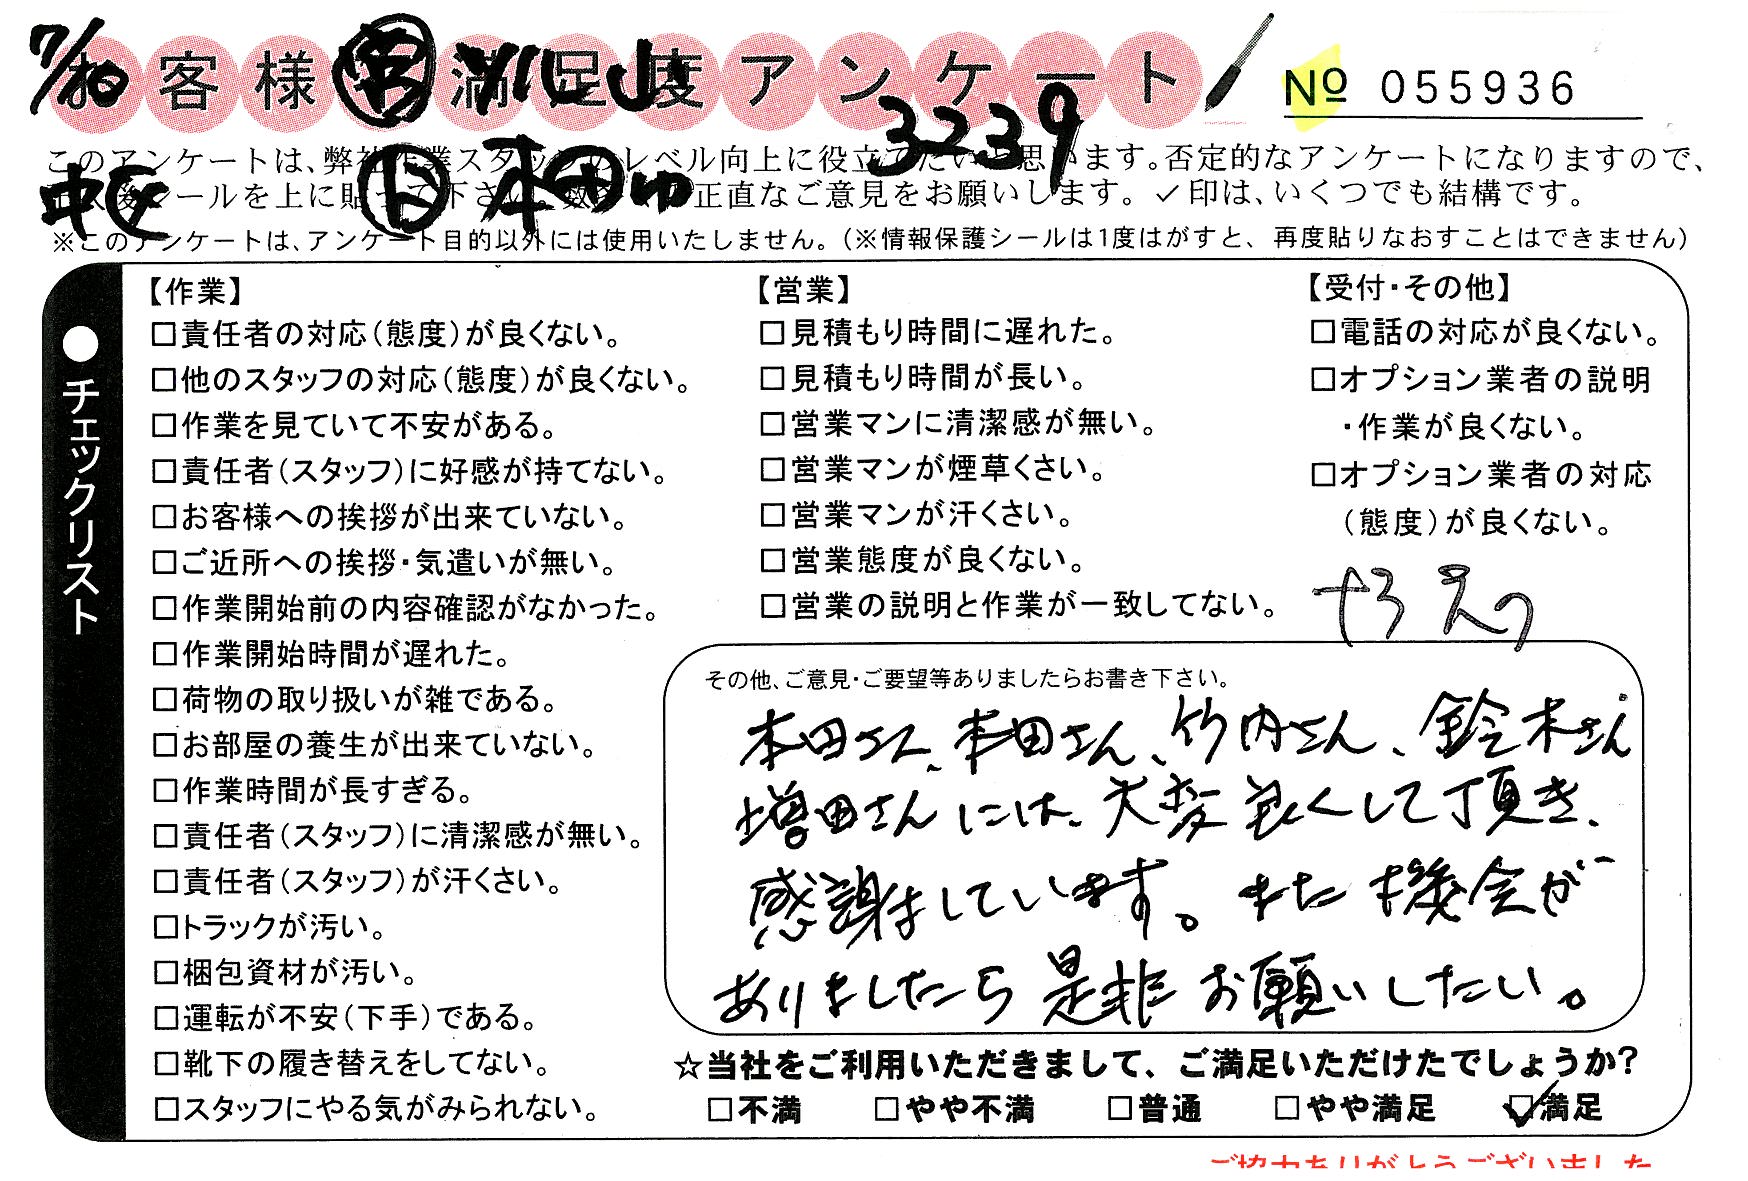 7/30
お客様満足度アンケート
№ 055936
3239
このアンケートは、弊社作業スタッフのレベル向上に役立てたいと思います。否定的なアンケートになりますので、
本田
シールを上に貼って下さい。 正直なご意見をお願いします。✓印は、いくつでも結構です。
※このアンケートは、アンケート目的以外には使用いたしません。(※情報保護シールは1度はがすと、再度貼りなおすことはできません)
●チェックリスト
【作業】
□責任者の対応(態度)が良くない。
□他のスタッフの対応(態度)が良くない。
□作業を見ていて不安がある。
□責任者(スタッフ)に好感が持てない。
□お客様への挨拶が出来ていない。
□ご近所への挨拶・気遣いが無い。
□作業開始前の内容確認がなかった。
□作業開始時間が遅れた。
□荷物の取り扱いが雑である。
□お部屋の養生が出来ていない。
□作業時間が長すぎる。
□責任者(スタッフ)に清潔感が無い。
□責任者(スタッフ)が汗くさい。
□トラックが汚い。
□梱包資材が汚い。
□運転が不安(下手)である。
□靴下の履き替えをしてない。
□スタッフにやる気がみられない。
【営業】
□見積もり時間に遅れた。
□見積もり時間が長い。
□営業マンに清潔感が無い。
□営業マンが煙草くさい。
□営業マンが汗くさい。
□営業態度が良くない。
□営業の説明と作業が一致してない。
【受付・その他】
□電話の対応が良くない。
□オプション業者の説明
・作業が良くない。
□オプション業者の対応
(態度)が良くない。
その他、ご意見・ご要望等ありましたらお書き下さい。
本田さん、本田さん、竹内さん、鈴木さん
増田さんには、大変良くして頂き、
感謝をしています。また機会が
ありましたら是非お願いしたい。
☆当社をご利用いただきまして、ご満足いただけたでしょうか?
□不満 □やや不満 □普通 □やや満足 ☑満足
ご協力ありがとうございました